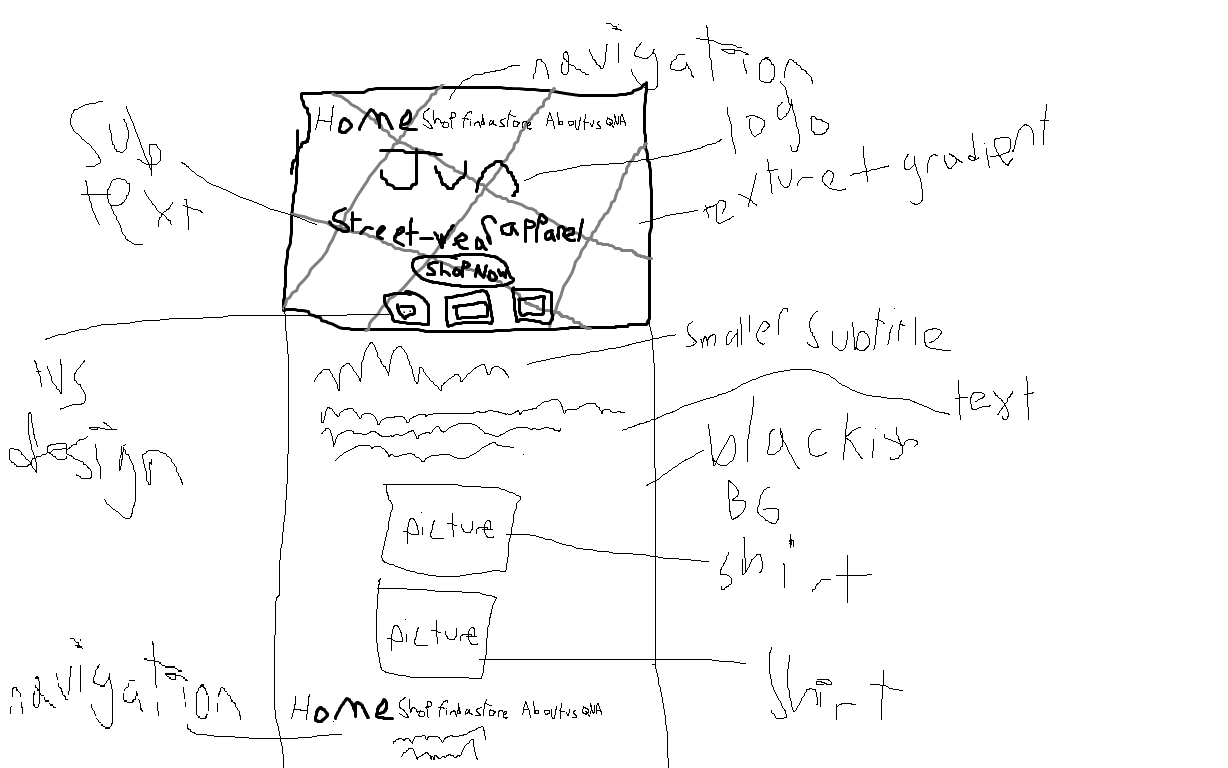 navigation
Home Shop findastore Aboutus QNA
logo
Sub
text
Jun
texture + gradient
Street-wear apparel
Shop Now
smaller Subtitle
tvs
design
text
blackish
BG
picture
shirt
picture
Shirt
navigation
Home Shop findastore Aboutus QNA